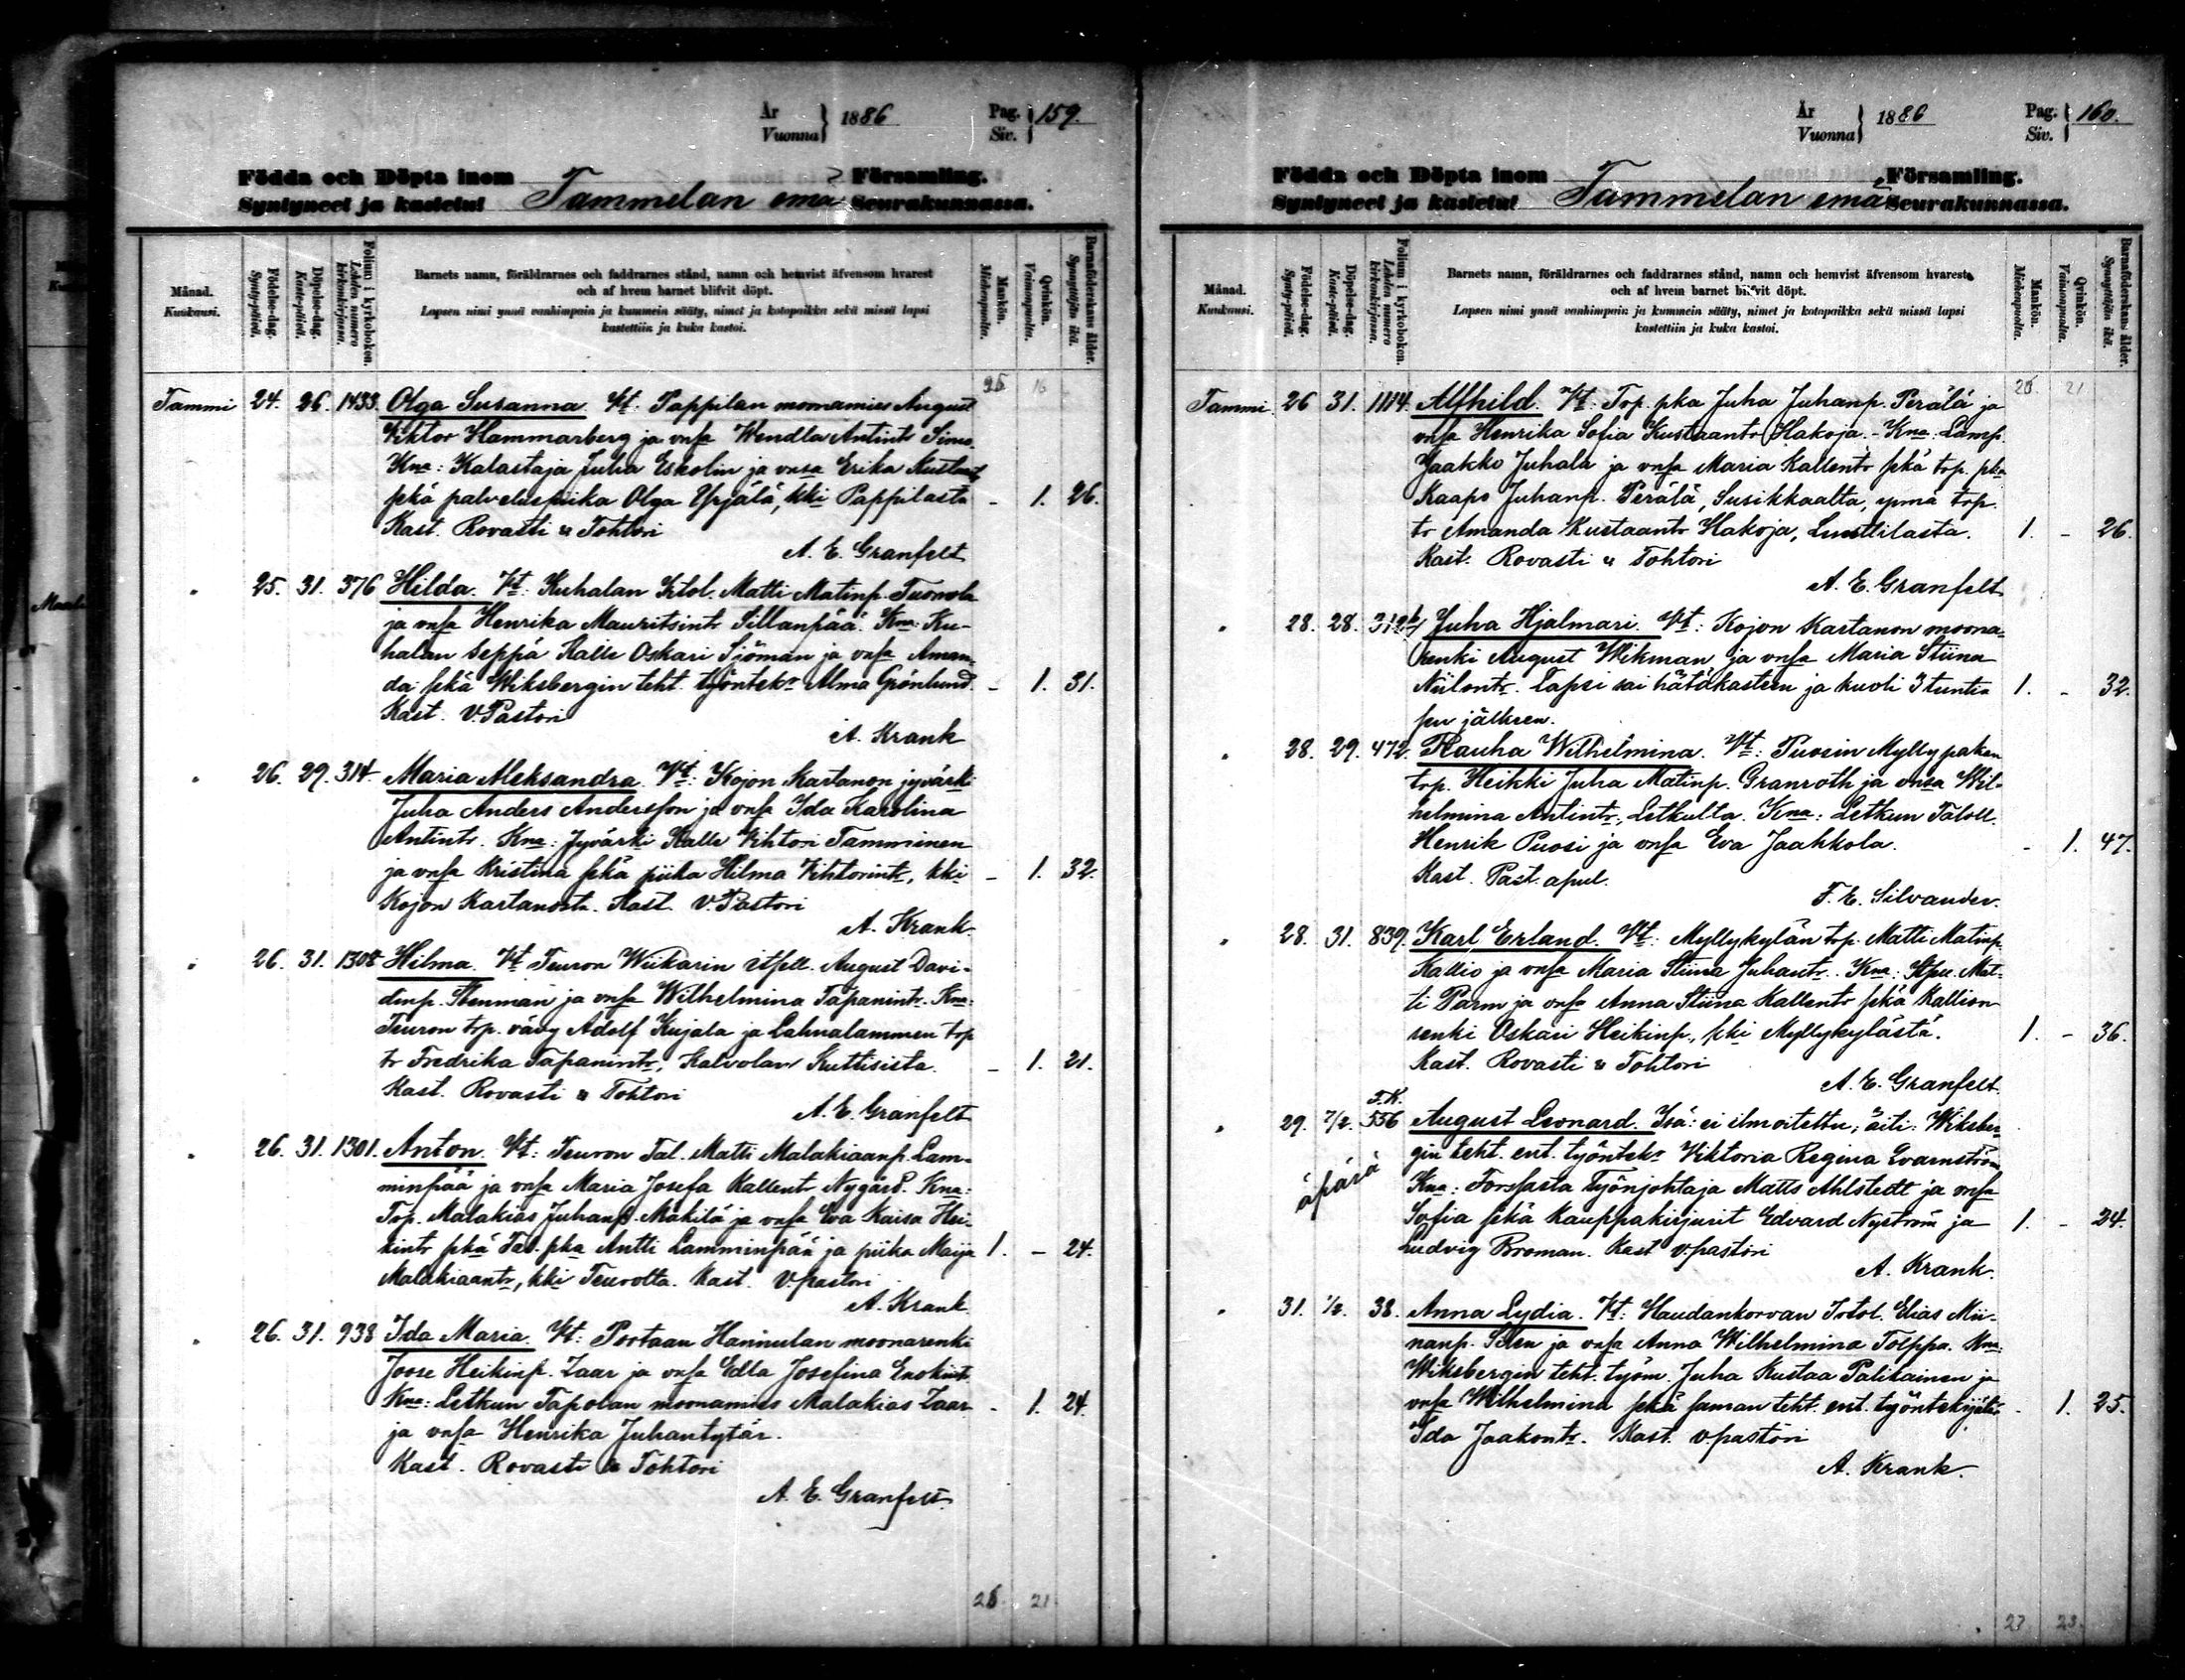 År
Vuonna } 1886
Pag.
Siv. { 159.
Födda och Döpta inom
Syntyneet ja kastetut Tammelan emä Församling.
Seurakunnassa.
Månad.
Kuukausi.
Födelse-dag.
Synty-päivä.
Döpelse-dag.
Kaste-päivä.
Folium i kyrkoboken.
Lehden numero kirkonkirjassa.
Barnets namn, föräldrarnes och faddrarnes stånd, namn och hemvist äfvensom hvarest
och af hvem barnet blifvit döpt.
Lapsen nimi ynnä vanhimpain ja kummein sääty, nimet ja kotopaikka sekä missä lapsi
kastettiin ja kuka kastoi.
Mankön.
Miehenpuolta.
Qvinkön.
Vaimonpuolta.
Barnaföderskans ålder.
Synnyttäjän ikä.
16
Tammi 24. 26. 1433. Olga Susanna. Vt: Pappilan moonamies August
Viktor Hammarberg ja vnsa Wendla Antintr Simo
Kna: Kalastaja Juha Eskolin ja vnsa Erika Kustaantr
sekä palveluspiika Olga Yrjälä, kki Pappilasta - 1. 26.
Kast. Rovasti & Tohtori
A. E. Granfelt
" 25. 31. 376 Hilda. Vt: Kuhalan Ktol. Matti Matinp. Tuomola
ja vnsa Henrika Mauritsintr Sillanpää. Kna: Ku-
halan Seppä Kalle Oskari Sjöman ja vnsa Aman-
da sekä Wiksbergin teht. työntekr Alma Grönlund. - 1. 31.
Kast. V. Pastori
A. Krank
" 26. 29. 314. Maria Aleksandra. Vt: Kojon Kartanon jyvärki
Juha Anders Andersson ja vnsa Ida Karolina
Antintr. Kna: Jyvärki Kalle Vihtori Tamminen
ja vnsa Kristina sekä piika Hilma Vihtorintr, kki - 1. 32.
Kojon Kartanosta. Kast. V. Pastori
A. Krank.
" 26. 31. 1308 Hilma. Vt Teuron Wiikarin itsell. August Davi-
dinp. Stenman ja vnsa Wilhelmina Tapanintr. Kna:
Teuron trp. vävy Adolf Kujala ja Lahnalammen trp
tr Fredrika Tapanintr, Kalvolan Kuttisista. - 1. 21.
Kast. Rovasti & Tohtori
A. E. Granfelt
" 26. 31. 1301. Anton. Vt: Teuron Tal. Matti Malakiaanp. Lam-
minpää ja vnsa Maria Josefa Kallentr Nygård. Kna:
Trp. Malakias Juhanp. Mäkilä ja vnsa Eva Kaisa Hei-
kintr sekä Tal. pka Antti Lamminpää ja piika Maija 1. - 24.
Malakiaantr, kki Teurolta. Kast. V. pastori
A. Krank
" 26. 31. 938 Ida Maria. Vt: Portaan Hannulan moonarenki
Joose Heikinp. Zaar ja vnsa Edla Josefina Enokint.
Kna: Letkun Tapolan moonamies Malakias Zaar - 1. 24.
ja vnsa Henrika Juhantytär.
Kast. Rovasti & Tohtori
A. E. Granfelt.
21
År
Vuonna } 1886
Pag.
Siv. { 160.
Födda och Döpta inom
Syntyneet ja kastetut Tammelan emä Församling.
Seurakunnassa.
Månad.
Kuukausi.
Födelse-dag.
Synty-päivä.
Döpelse-dag.
Kaste-päivä.
Folium i kyrkoboken.
Lehden numero kirkonkirjassa.
Barnets namn, föräldrarnes och faddrarnes stånd, namn och hemvist äfvensom hvarest
och af hvem barnet blifvit döpt.
Lapsen nimi ynnä vanhimpain ja kummein sääty, nimet ja kotopaikka sekä missä lapsi
kastettiin ja kuka kastoi.
Mankön.
Miehenpuolta.
Qvinkön.
Vaimonpuolta.
Barnaföderskans ålder.
Synnyttäjän ikä.
21
Tammi. 26 31. 1114. Alfhild. Vt: Trp. pka Juha Juhanp. Perälä ja
vnsa Henrika Sofia Kustaantr Hakoja. - Kna: Lamp.
Jaakko Juhala ja vnsa Maria Kallentr sekä trp. pka
Kaapo Juhanp. Perälä, Susikkaalta, ynnä trp.
tr Amanda Kustaantr Hakoja, Lunttilasta. 1. - 26.
Kast. Rovasti & Tohtori
A. E. Granfelt.
" 28. 28. 312 Juha Hjalmari. Vt: Kojon Kartanon moona-
renki August Wikman ja vnsa Maria Stiina
Niilontr. Lapsi sai hätäkasteen ja kuoli 3 tuntia 1. - 32.
sen jälkeen.
" 28. 29. 472. Rauha Wilhelmina. Vt: Puosin Myllypakan
trp. Heikki Juha Matinp. Granroth ja vnsa Wil-
helmina Antintr, Letkulta. Kna: Letkun Taloll.
Henrik Puosi ja vnsa Eva Jaakkola. - 1. 47.
Kast. Past. apul.
F. E. Silvander.
" 28. 31. 839. Karl Erland. Vt: Myllykylän trp. Matti Matinp.
Kallio ja vnsa Maria Stiina Juhantr. Kna: Mat-
ti Parm ja vnsa Anna Stiina Kallentr sekä Kallion
renki Oskari Heikinp., kki Myllykylästä. 1. - 36.
Kast. Rovasti & Tohtori
A. E. Granfelt.
T. K.
" 29. 7/2. 556 August Leonard. Isä: ei ilmoitettu; äiti: Wiksber-
gin teht. ent. työntekr Viktoria Regina Qvarnström
äpärä Kna: Forssasta Työnjohtaja Matts Ahlstedt ja vnsa
Sofia sekä Kauppakirjurit Edvard Nyström ja 1. - 24.
Ludvig Broman. Kast v. pastori
A. Krank.
" 31. 1/2. 38. Anna Lydia. Vt: Haudankorvan Irtol. Elias Mii-
nanp. Selen ja vnsa Anna Wilhelmina Tolppa. Kna:
Wiksbergin teht. työm. Juha Kustaa Palikainen ja
vnsa Wilhelmina sekä saman teht. ent. työntekijätär - 1. 25.
Ida Jaakontr. Kast. v. pastori
A. Krank.
27 23